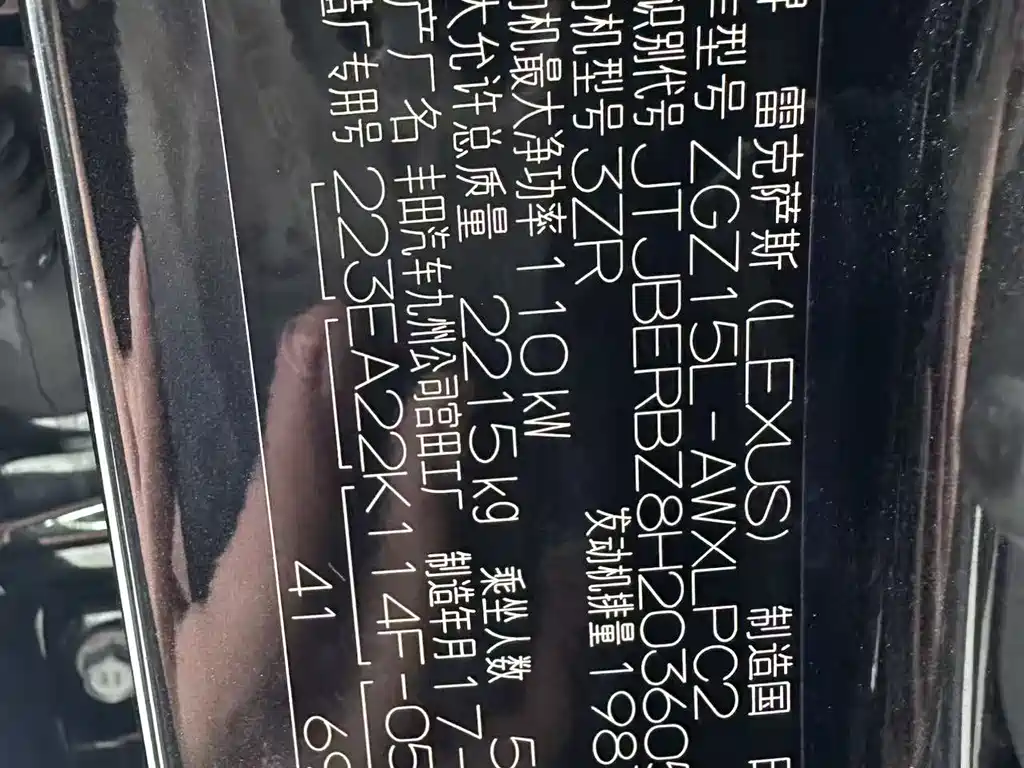 雷克萨斯 (LEXUS) 制造国
型号 ZGZ15L-AWXLPC2
识别代号 JTJBERBZ8H203605
机型号 3ZR 发动机排量 198
机最大净功率 110kW
大允许总质量 2215kg 乘坐人数 5
产厂名 丰田汽车九州公司宫田工厂 制造年月 17-
厂专用号 223EA22K114F-05
41 69